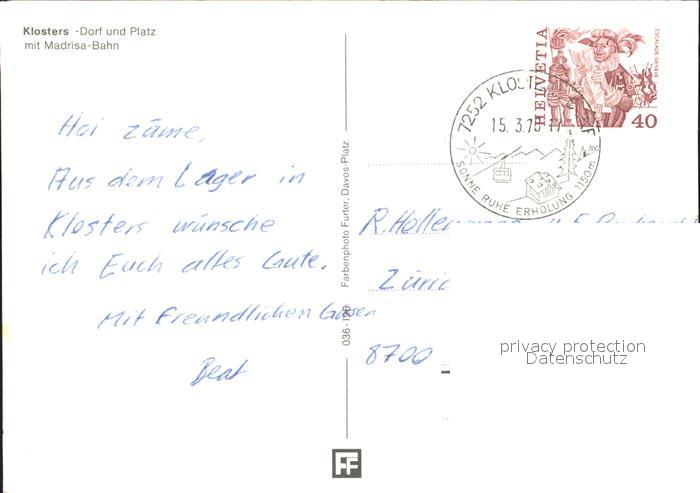 Klosters -Dorf und Platz
mit Madrisa-Bahn
HELVETIA
ESCALADE GENÈVE
40
7252 KLOSTERS
15.3.78-17
SONNE RUHE ERHOLUNG 1150m
Hoi zäme,
Aus dem Lager in
Klosters wünsche
ich Euch alles Gute.
Mit freundlichen
Beat
Farbenphoto Furter, Davos-Platz
036-126
R.
Züric
8700
privacy protection
Datenschutz
FF